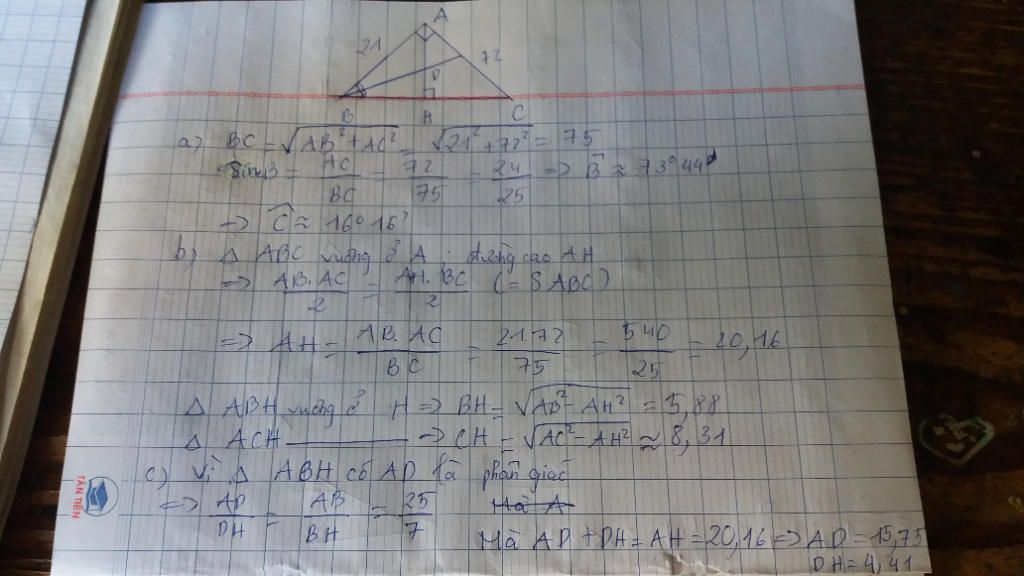 A
21
72
D
B H C
a) BC = √AB² + AC² = √21² + 72² = 75
Sin B = AC/BC = 72/75 = 24/25 => B̂ ≈ 73°44'
=> Ĉ ≈ 16°16'
b) Δ ABC vuông ở A : đường cao AH
=> AB.AC/2 = AH.BC/2 (= S ABC)
=> AH = AB.AC/BC = 21.72/75 = 540/25 = 20,16
Δ ABH vuông ở H => BH = √AB² - AH² = 5,88
Δ ACH ——— => CH = √AC² - AH² ≈ 8,31
c) Vì Δ ABH có AD là phân giác
=> AD/DH = AB/BH = 25/7 Mà A
Mà AD + DH = AH = 20,16 => AD = 15,75
DH = 4,41
TÂN TIẾN